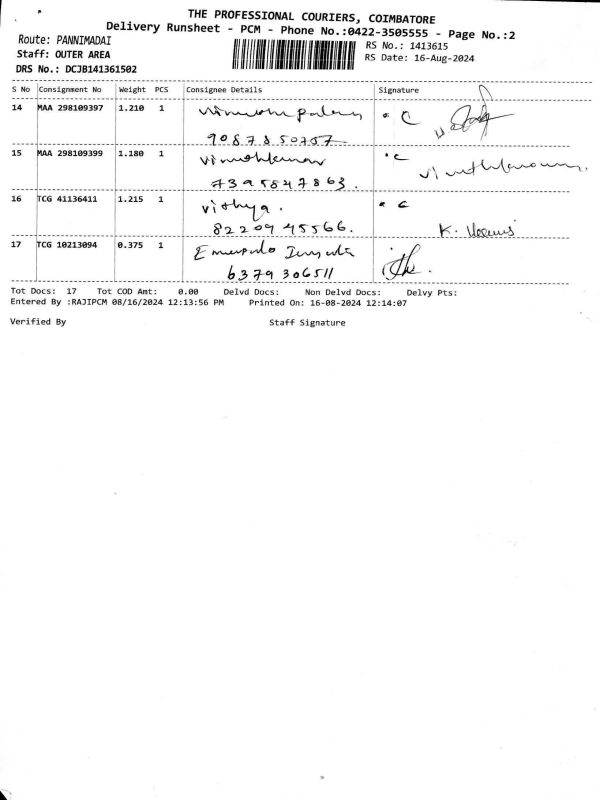 THE PROFESSIONAL COURIERS, COIMBATORE
Delivery Runsheet - PCM - Phone No.:0422-3505555 - Page No.:2
Route: PANNIMADAI
RS No.: 1413615
Staff: OUTER AREA
RS Date: 16-Aug-2024
DRS No.: DCJB141361502
S No Consignment No Weight PCS Consignee Details Signature
14 MAA 298109397 1.210 1 C
9087850757
15 MAA 298109399 1.180 1 Vinothkumar C Vinothkumar
7395847863.
16 TCG 41136411 1.215 1 Vithya. C
8220945566. K.
17 TCG 10213094 0.375 1
6379306511
Tot Docs: 17 Tot COD Amt: 0.00 Delvd Docs: Non Delvd Docs: Delvy Pts:
Entered By :RAJIPCM 08/16/2024 12:13:56 PM Printed On: 16-08-2024 12:14:07
Verified By Staff Signature